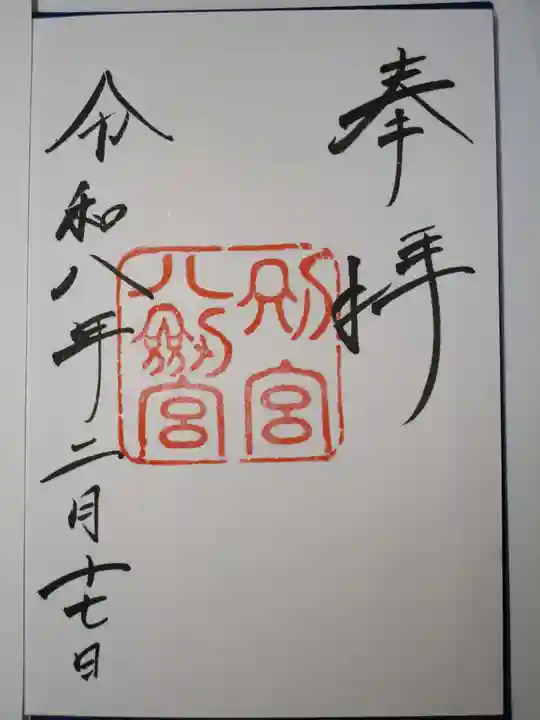 奉拝
別宮
八劔宮
令和八年二月十七日